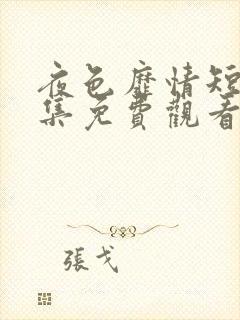 夜色靡情短
集免費觀看
張戈